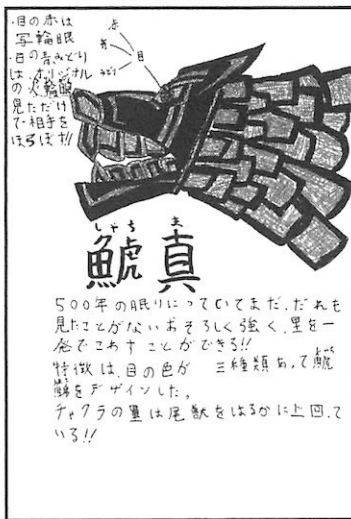 ・目の赤は
写輪眼
・目の青みどり
はオリジナル
の火輪眼
見ただけ
で相手を
ほろぼす!!
赤
青
目
みどり
しゃち ま
鯱真
500年の眠りについていてまだ、だれも
見たことがないおそろしく強く、星を一
発でこわすことができる!!
特徴は、目の色が 三種類あって鯱
をデザインした。
チャクラの量は尾獣をはるかに上回って
いる!!